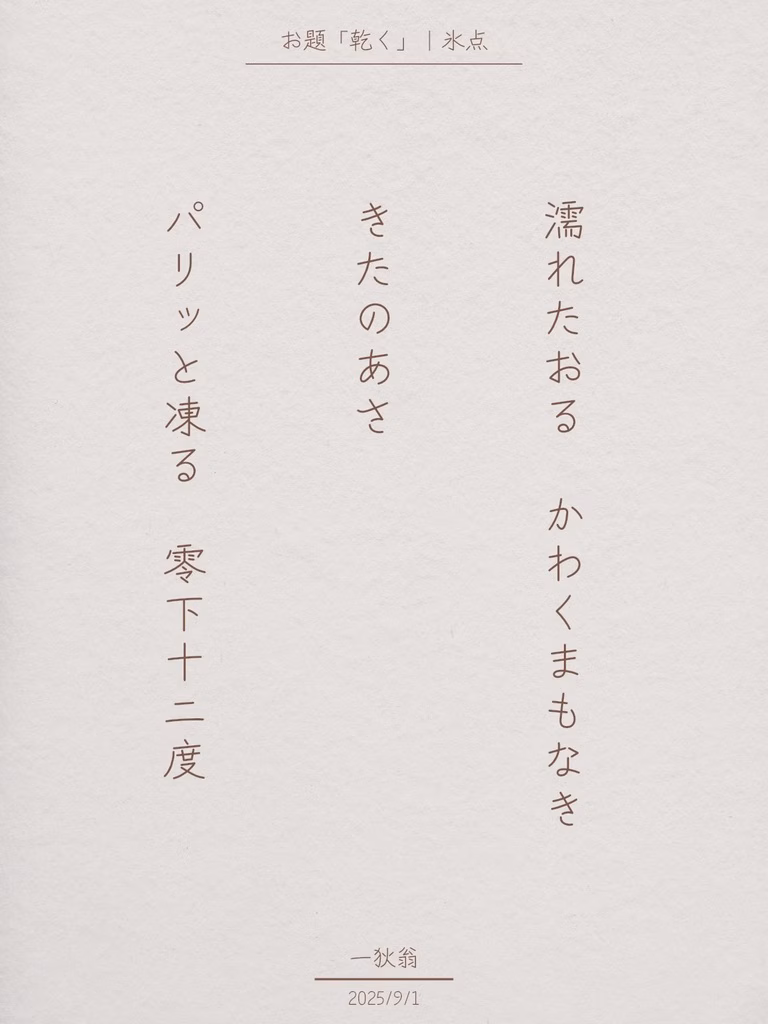 お題「乾く」｜氷点
濡れたおる　かわくまもなき
きたのあさ
パリッと凍る　零下十二度
一狄翁
2025/9/1